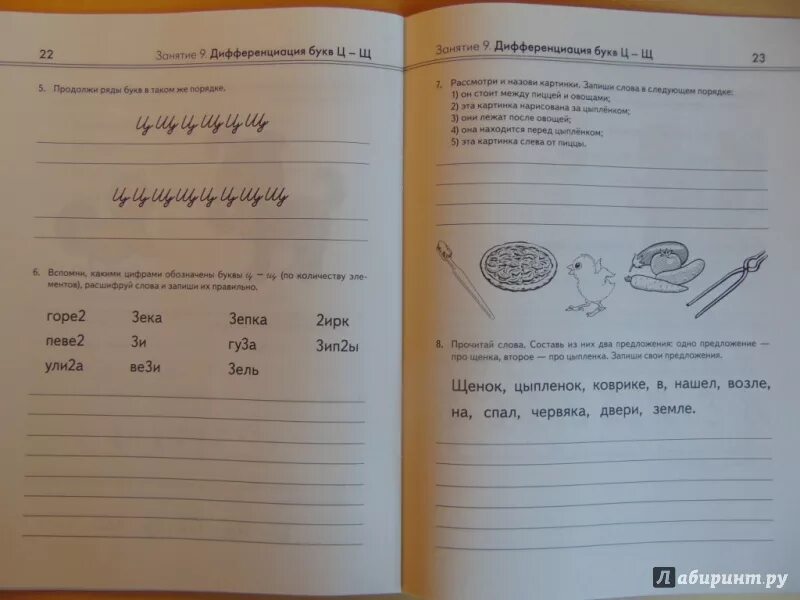 22 Занятие 9. Дифференциация букв Ц – Щ
5. Продолжи ряды букв в таком же порядке.
Ц Щ Ц Щ Ц Щ
Ц Ц Щ Щ Ц Ц Щ Щ
6. Вспомни, какими цифрами обозначены буквы ц – щ (по количеству эле-
ментов), расшифруй слова и запиши их правильно.
горе2 3ека 3епка 2ирк
певе2 3и гу3а 3ип2ы
ули2а ве3и 3ель
Занятие 9. Дифференциация букв Ц – Щ 23
7. Рассмотри и назови картинки. Запиши слова в следующем порядке:
1) он стоит между пиццей и овощами;
2) эта картинка нарисована за цыплёнком;
3) они лежат после овощей;
4) она находится перед цыплёнком;
5) эта картинка слева от пиццы.
8. Прочитай слова. Составь из них два предложения: одно предложение —
про щенка, второе — про цыпленка. Запиши свои предложения.
Щенок, цыпленок, коврике, в, нашел, возле,
на, спал, червяка, двери, земле.
Лабиринт.ру